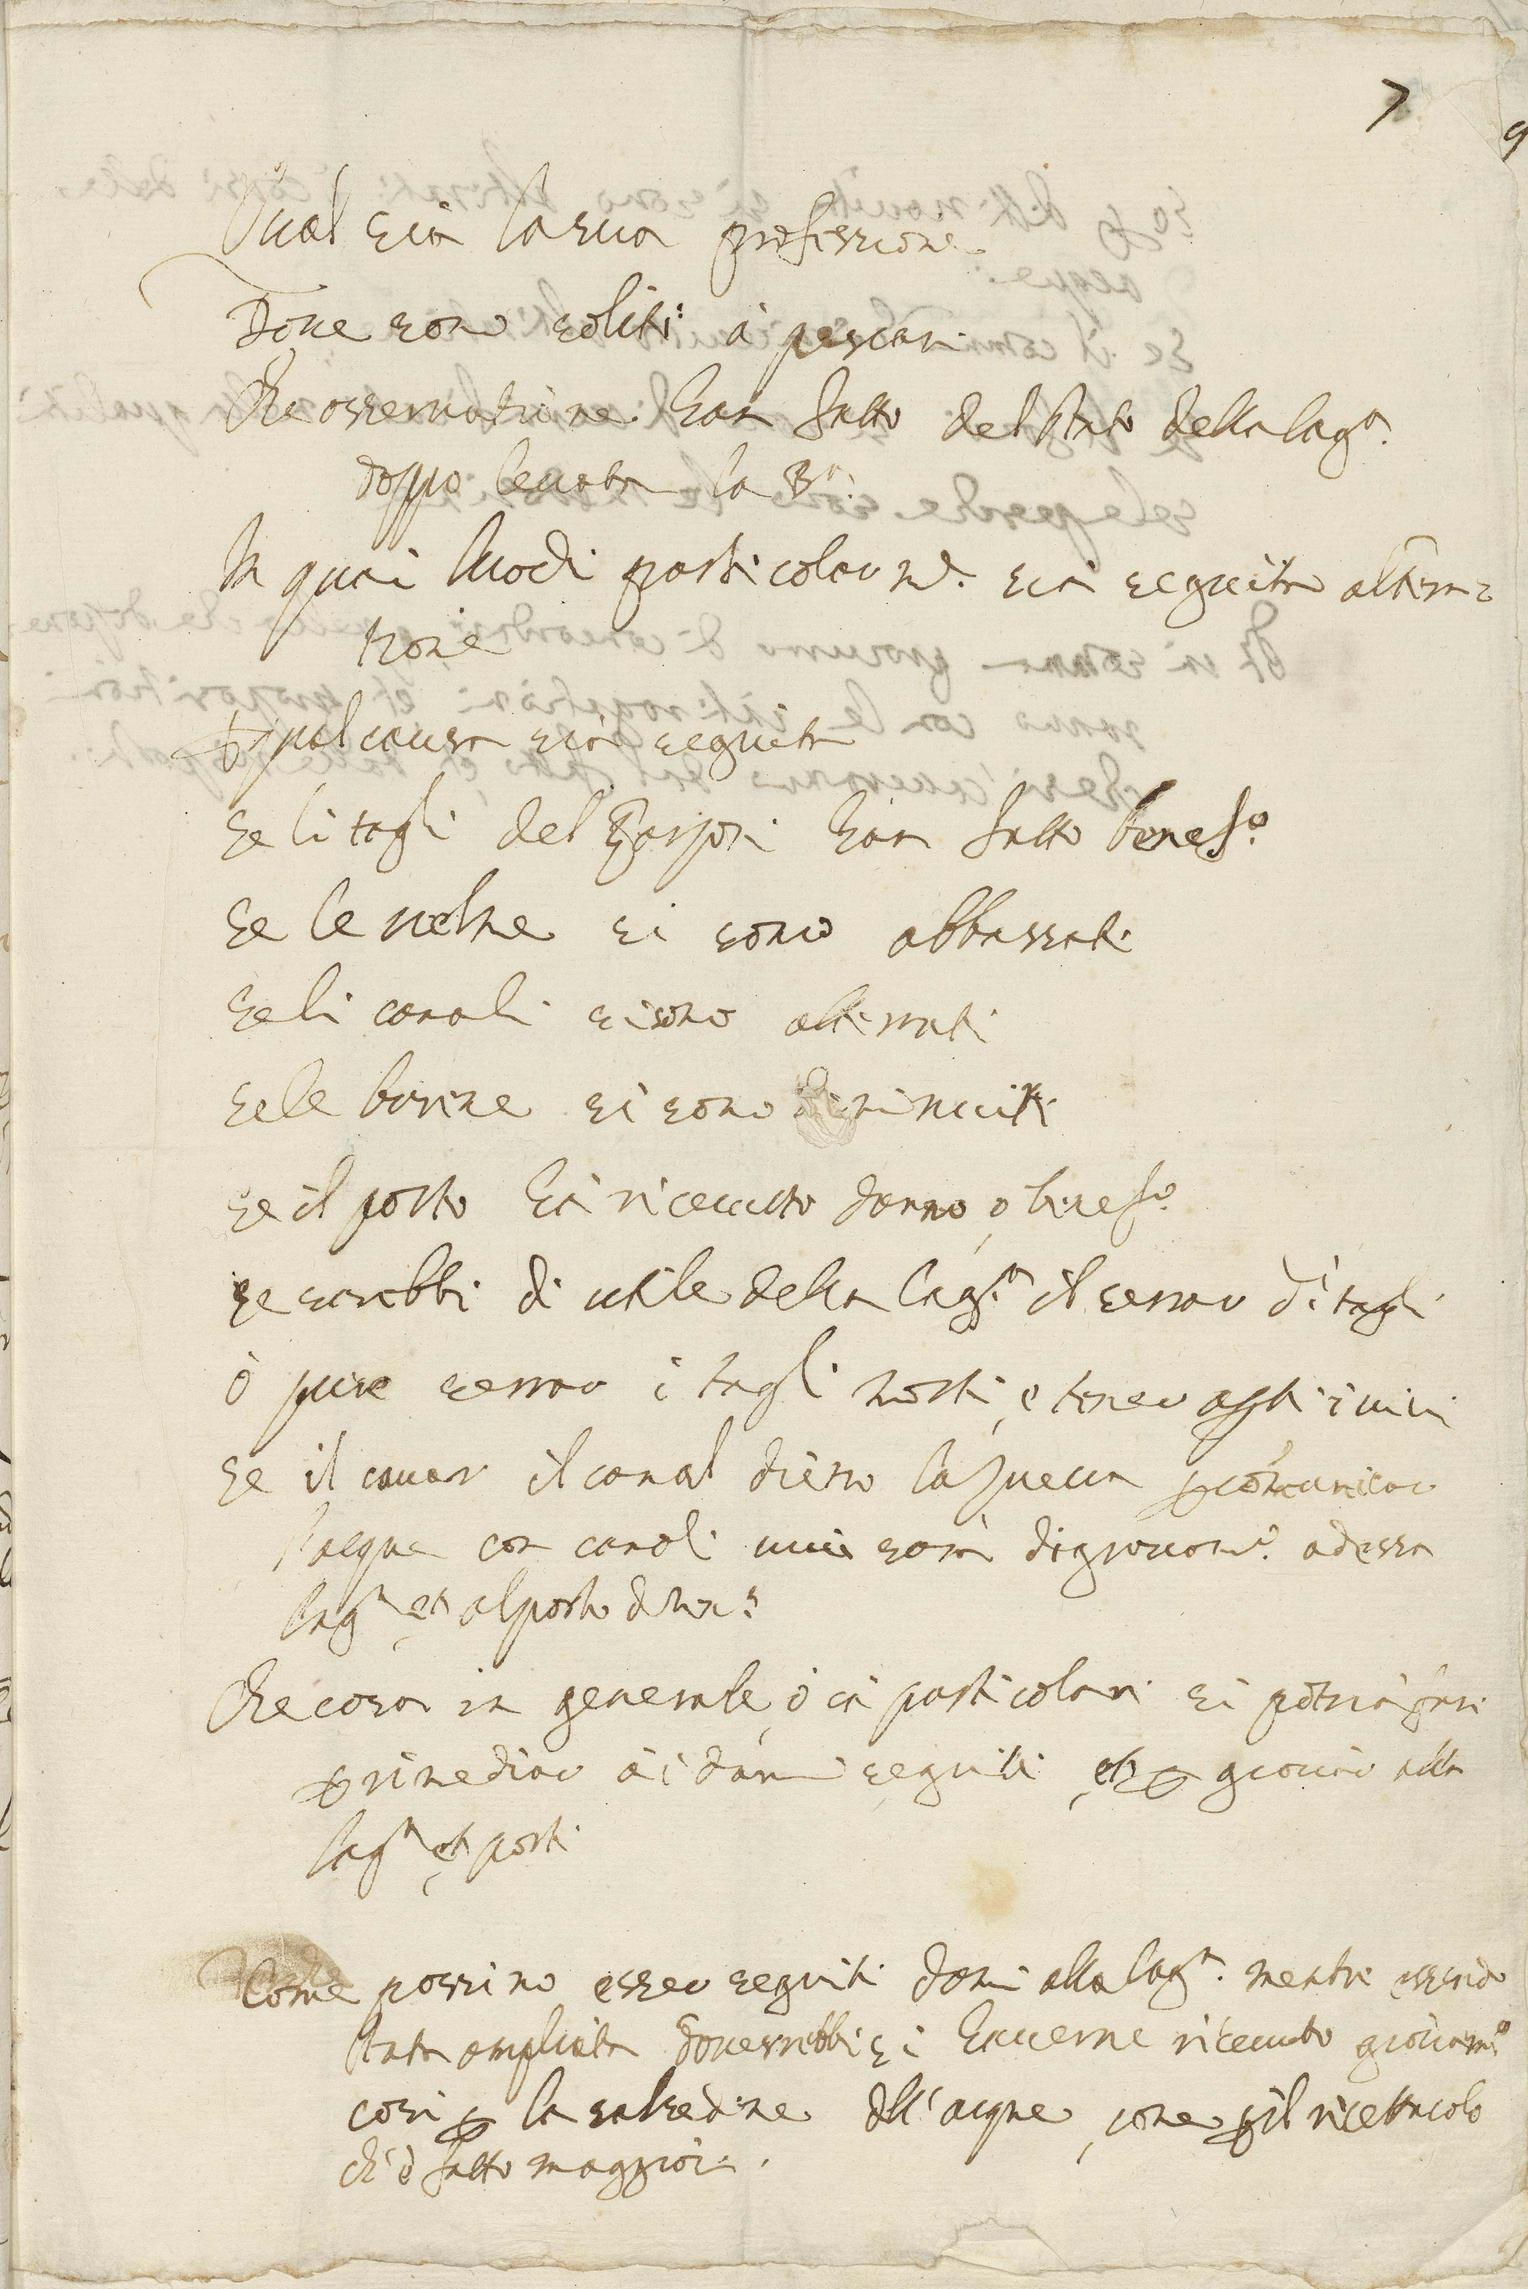 7
9
Qual sia la sua professione
Doue sono soliti à pescar
Che osseruatione han fatto del stato della lag.a
doppo leuata la B.a
In quai luochi particolarm.te sia seguita altera=
tione
p qual causa sia seguita
Se li tagli del han fatto benef.o
Se le uelme si sono abbassate
Se li canali si sono atterrati
Se le barene si sono diminuite
Se il porto hà riceuuto danno, o benef.o
Se sarebbe di utile della lag.a il serrar di tagli
ò pure serrar i tagli morti, e tener aperti i uiui
Se il cauar il canal dietro la p comunicar
l'acque con canali uiui sarà di giouam.to ad essa
lag.a et al porto
Che cosa in generale, ò in particolar si potrà far
p rimediar ài danni seguiti, et p giouar alla
lag.a et porti
Come possino esser seguiti danni alla lag.a mentre essendo
stata ampliata douerebbesi hauerne riceuuto giouam.to
cosi p la salsedine dell'acque, come p il ricettacolo
ch'è fatto maggior.